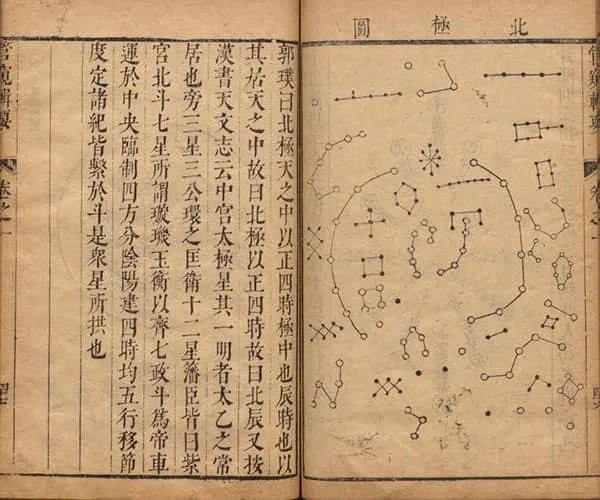 管窺輯要
卷之一
北極圖
郭璞曰北極天之中以正四時極中也辰時也以
其居天之中故曰北極以正四時故曰北辰又按
漢書天文志云中宮太極星其一明者太乙之常
居也旁三星三公環之匡衛十二星藩臣皆曰紫
宮北斗七星所謂璇璣玉衡以齊七政斗爲帝車
運於中央臨制四方分陰陽建四時均五行移節
度定諸紀皆繫於斗是衆星所拱也
管窺輯要
卷之一